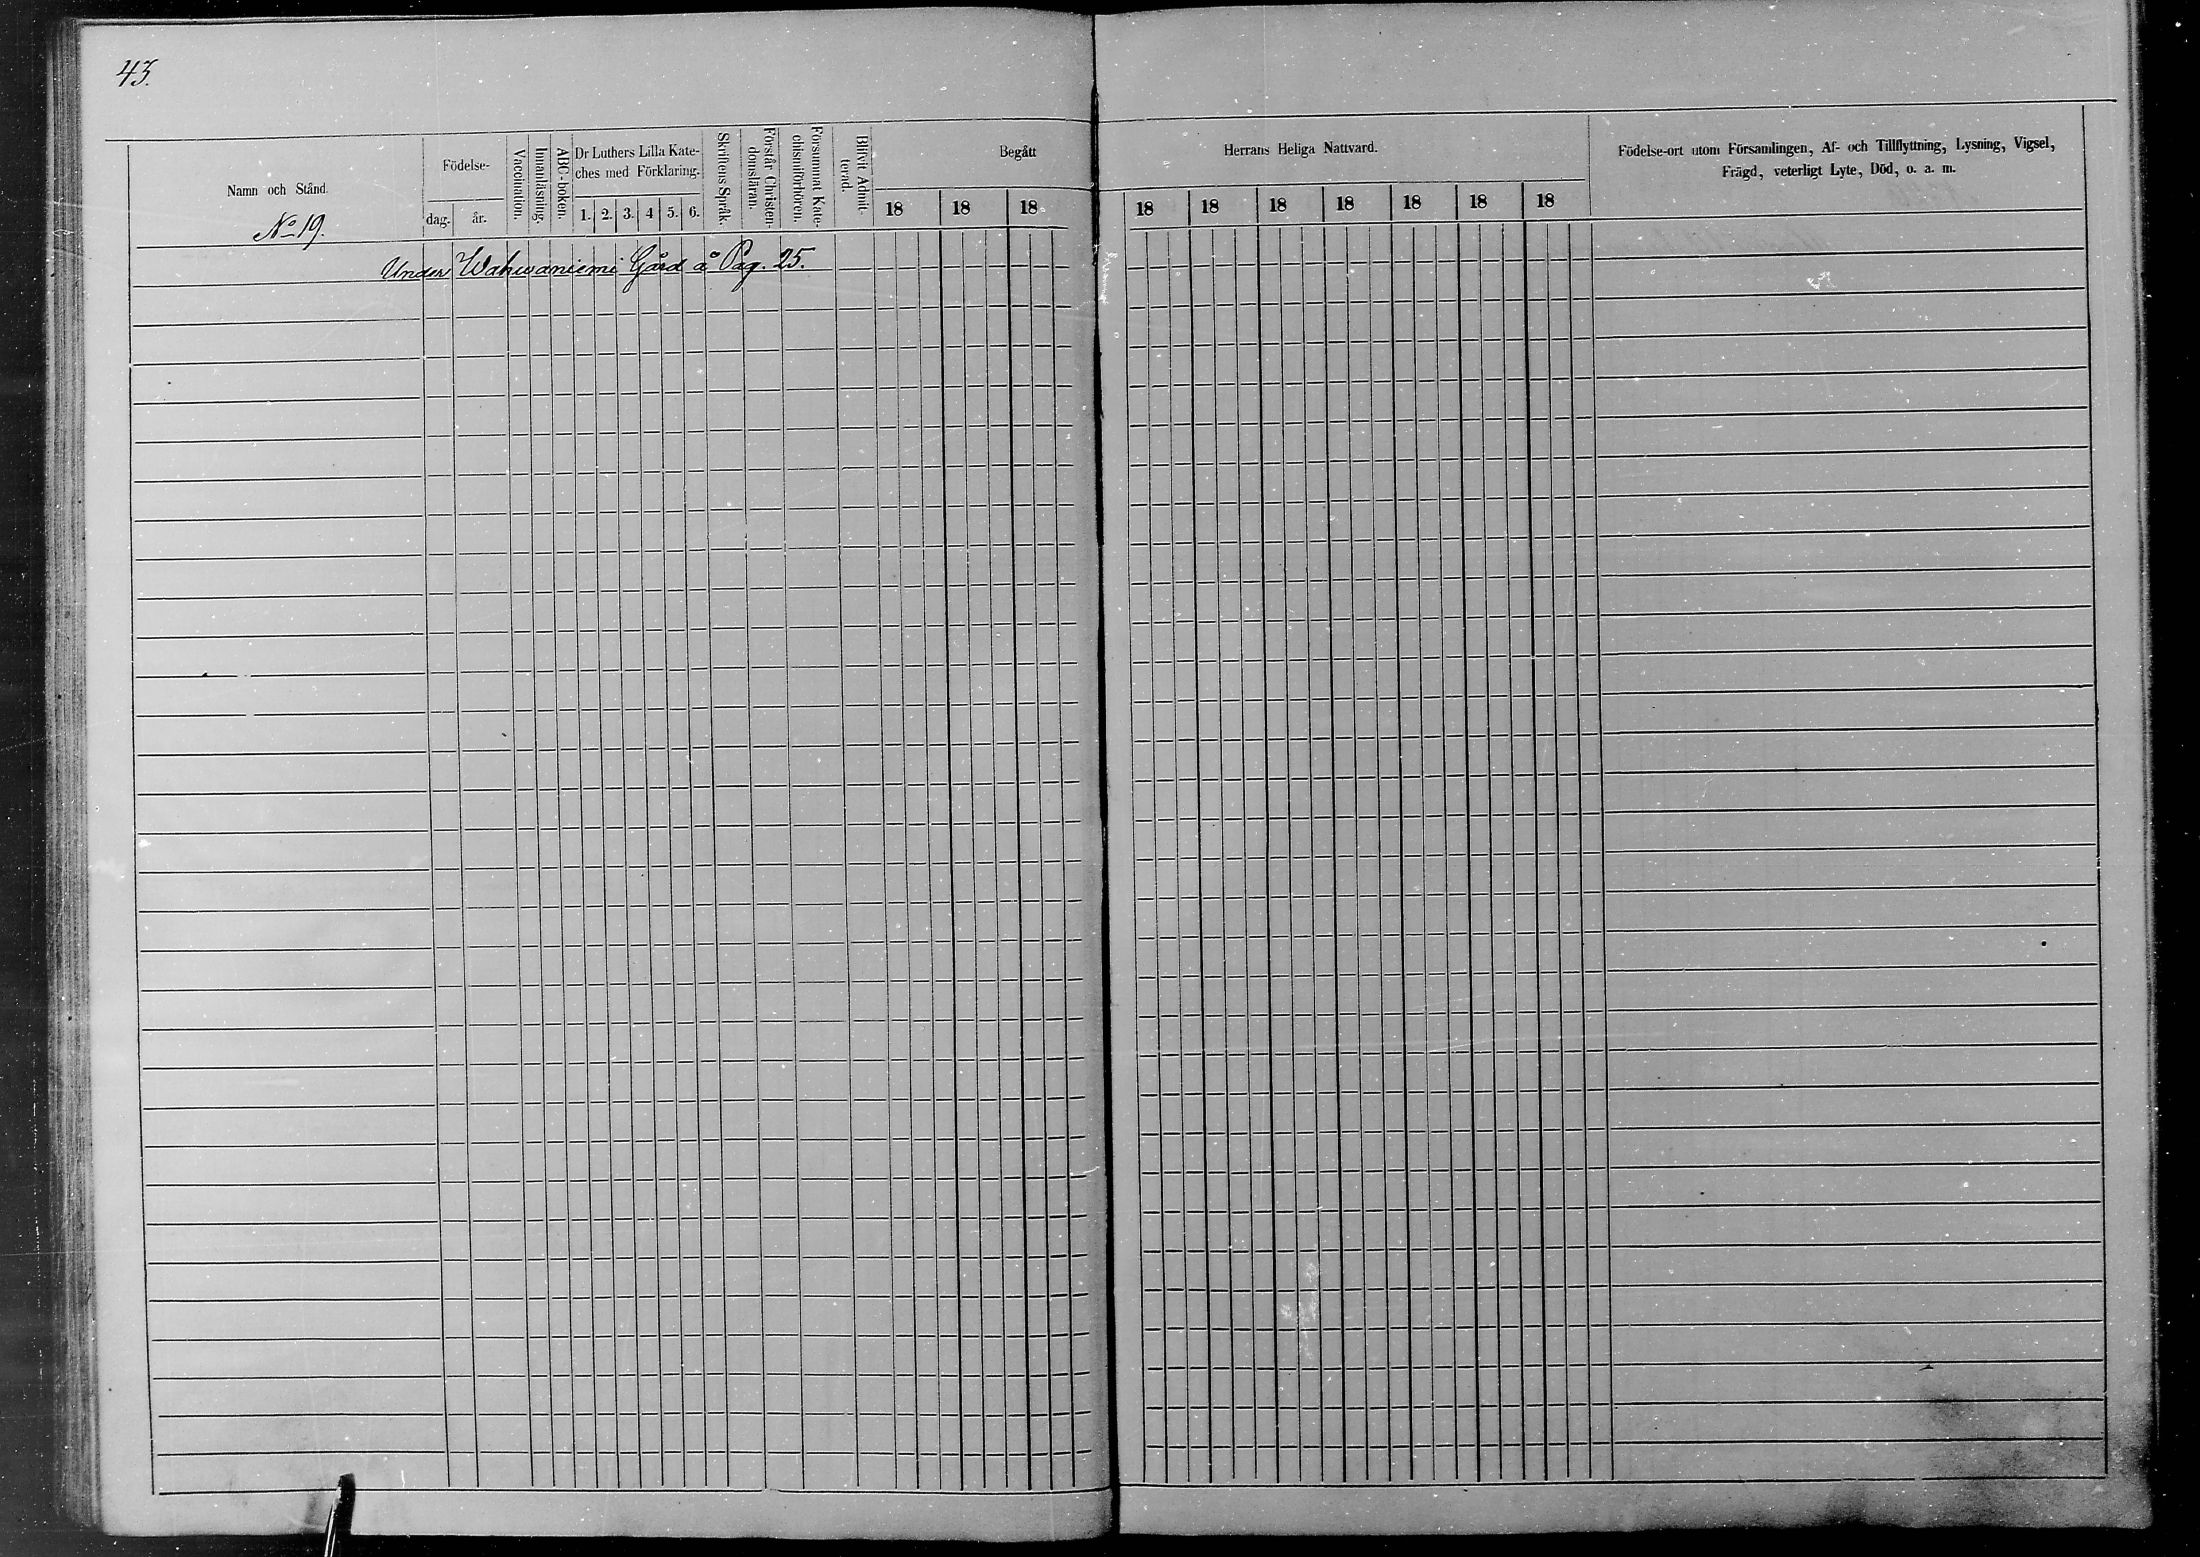 43.
Namn och Stånd.
No 19.
Födelse-
dag. år.
Vaccination.
Innanläsning.
ABC-boken.
Dr Luthers Lilla Kate-
ches med Förklaring.
1. 2. 3. 4 5. 6.
Skriftens Språk.
Förstår Christen-
domsläran.
Försummat Kate-
chismiförhören.
Blifvit Admit-
terad.
Begått
18 18 18
Herrans Heliga Nattvard.
18 18 18 18 18 18 18
Födelse-ort utom Församlingen, Af- och Tillflyttning, Lysning, Vigsel,
Frägd, veterligt Lyte, Död, o. a. m.
Under Wahwaniemi Gård å Pag. 25.